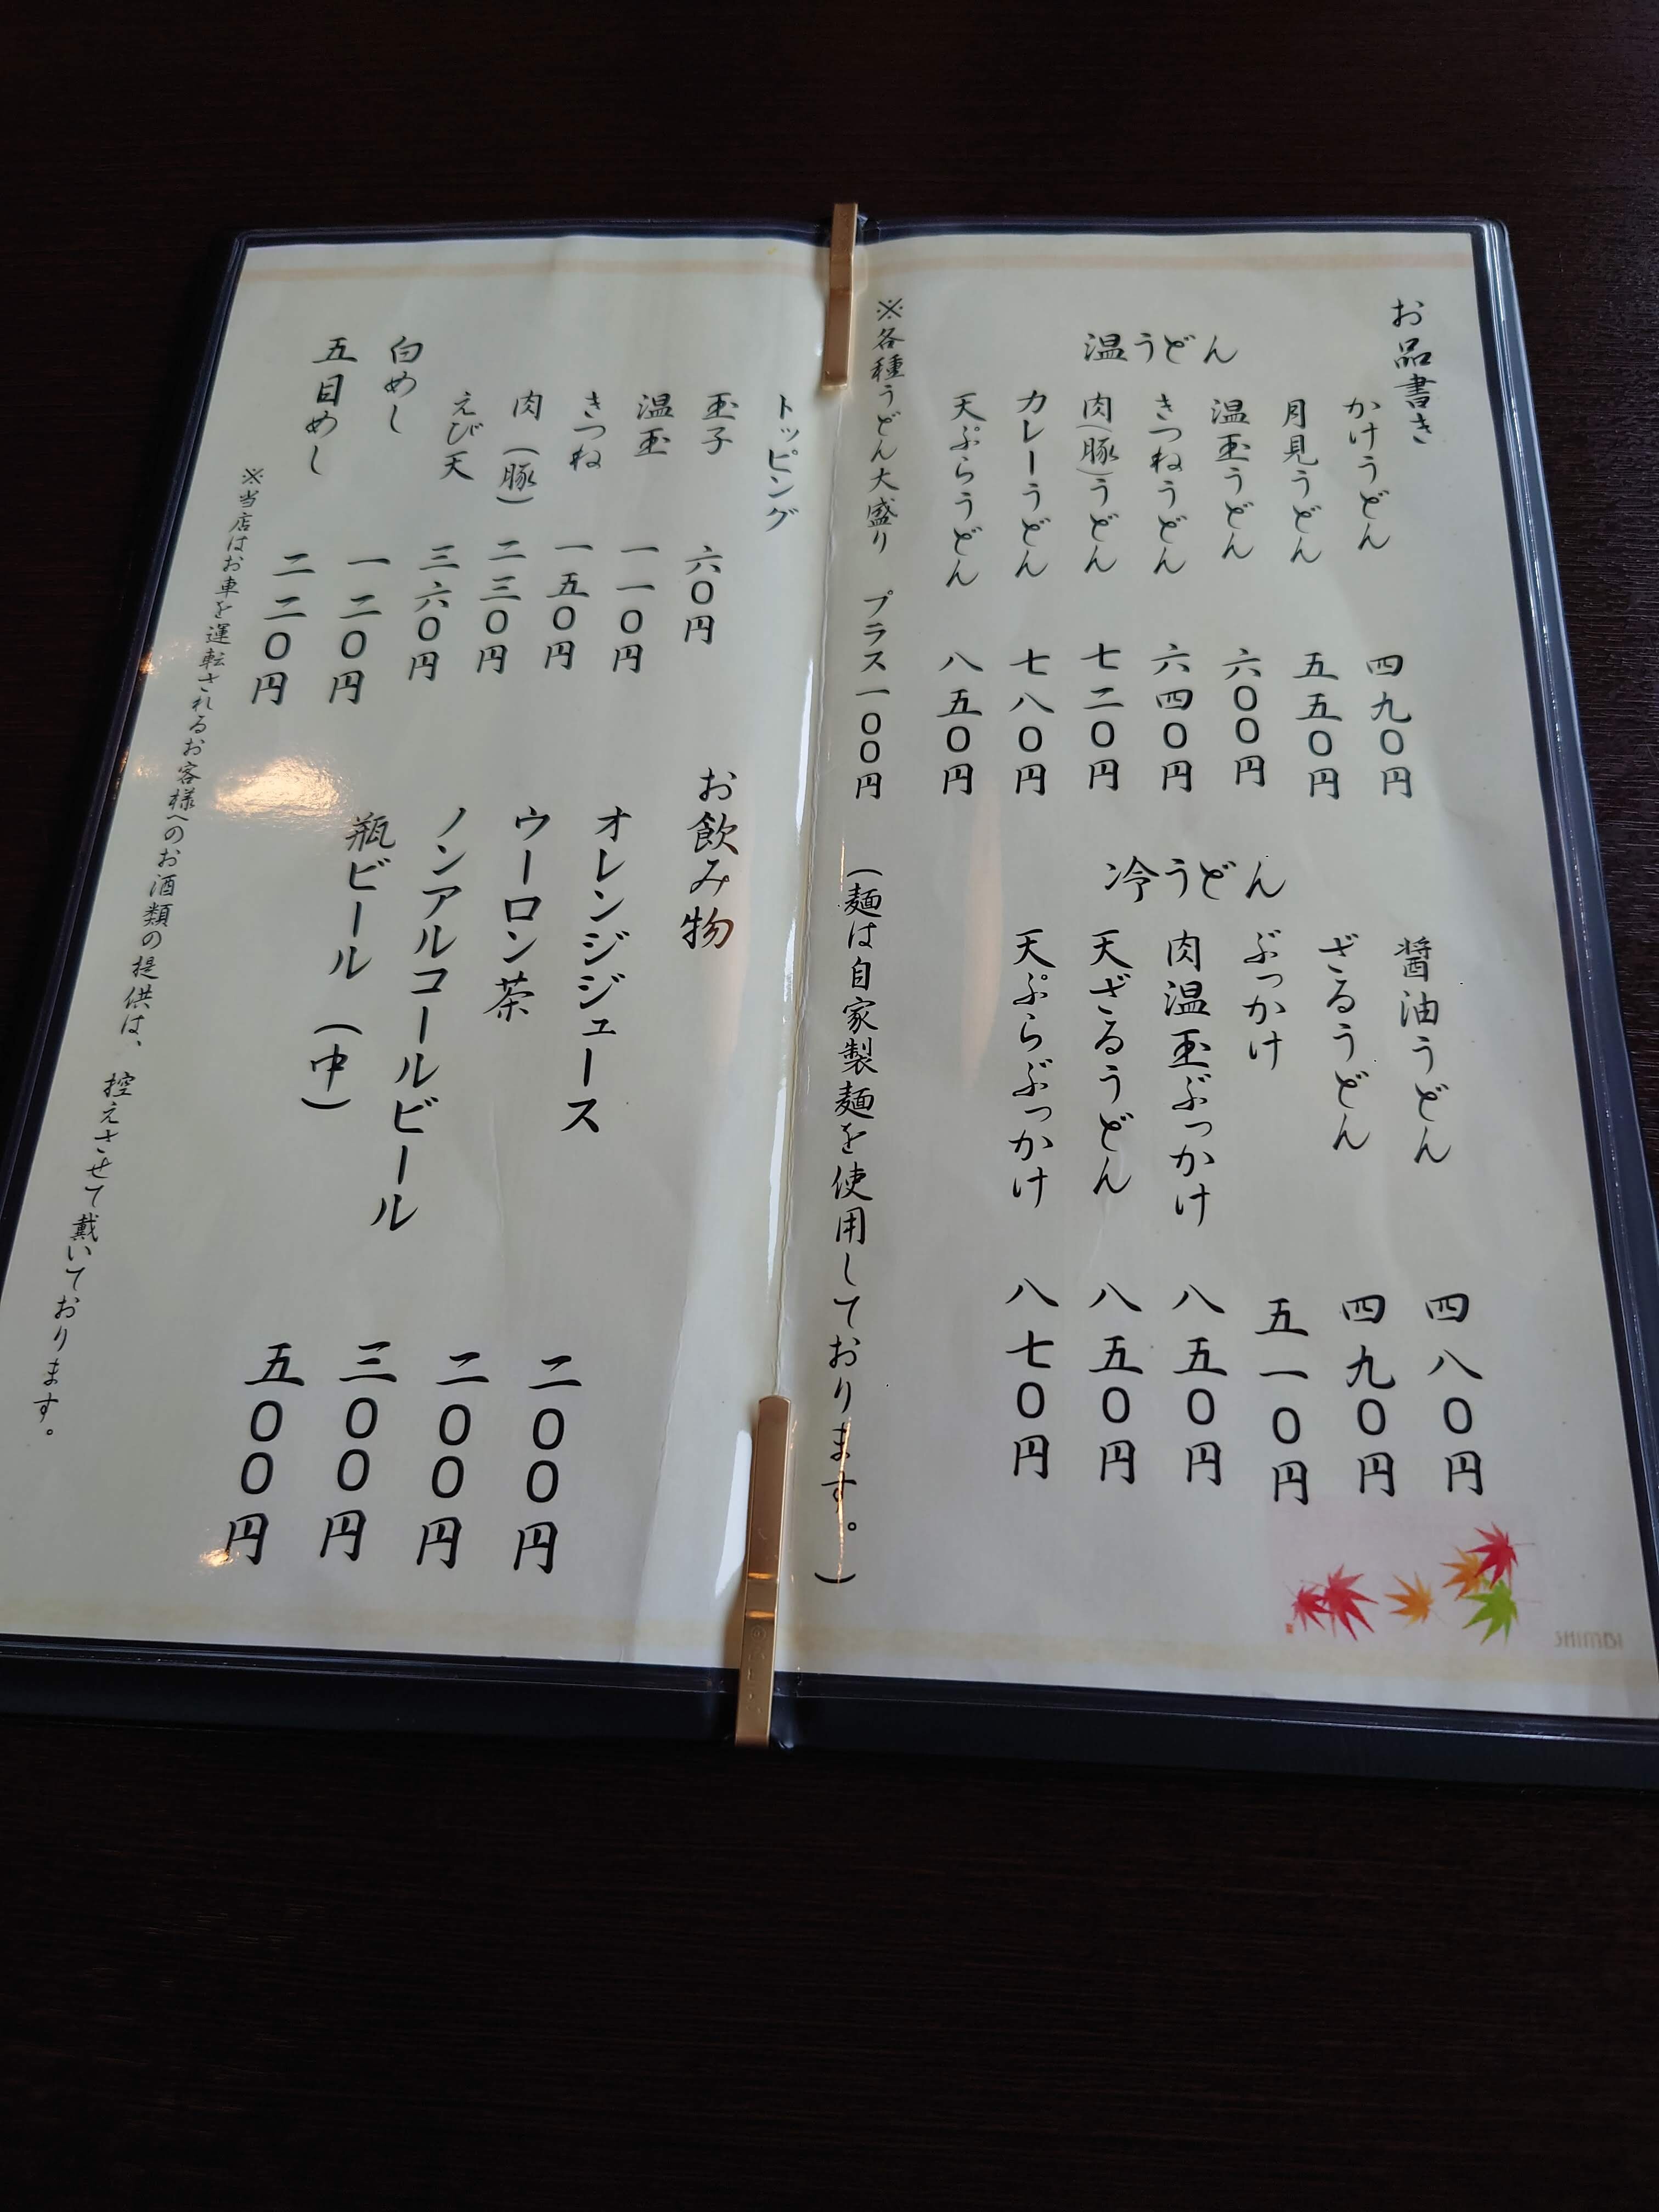 お品書き
温うどん
かけうどん 四九〇円
月見うどん 五五〇円
温玉うどん 六〇〇円
きつねうどん 六四〇円
肉(豚)うどん 七二〇円
カレーうどん 七八〇円
天ぷらうどん 八五〇円
冷うどん
醤油うどん 四八〇円
ざるうどん 四九〇円
ぶっかけ 五一〇円
肉温玉ぶっかけ 八五〇円
天ざるうどん 八五〇円
天ぷらぶっかけ 八七〇円
※各種うどん大盛り プラス一〇〇円 (麺は自家製麺を使用しております。)
トッピング
玉子 六〇円
温玉 一一〇円
きつね 一五〇円
肉(豚) 二三〇円
えび天 三六〇円
白めし 一二〇円
五目めし 二二〇円
お飲み物
オレンジジュース 二〇〇円
ウーロン茶 二〇〇円
ノンアルコールビール 三〇〇円
瓶ビール(中) 五〇〇円
※当店はお車を運転されるお客様へのお酒類の提供は、控えさせて戴いております。
SHIMBI